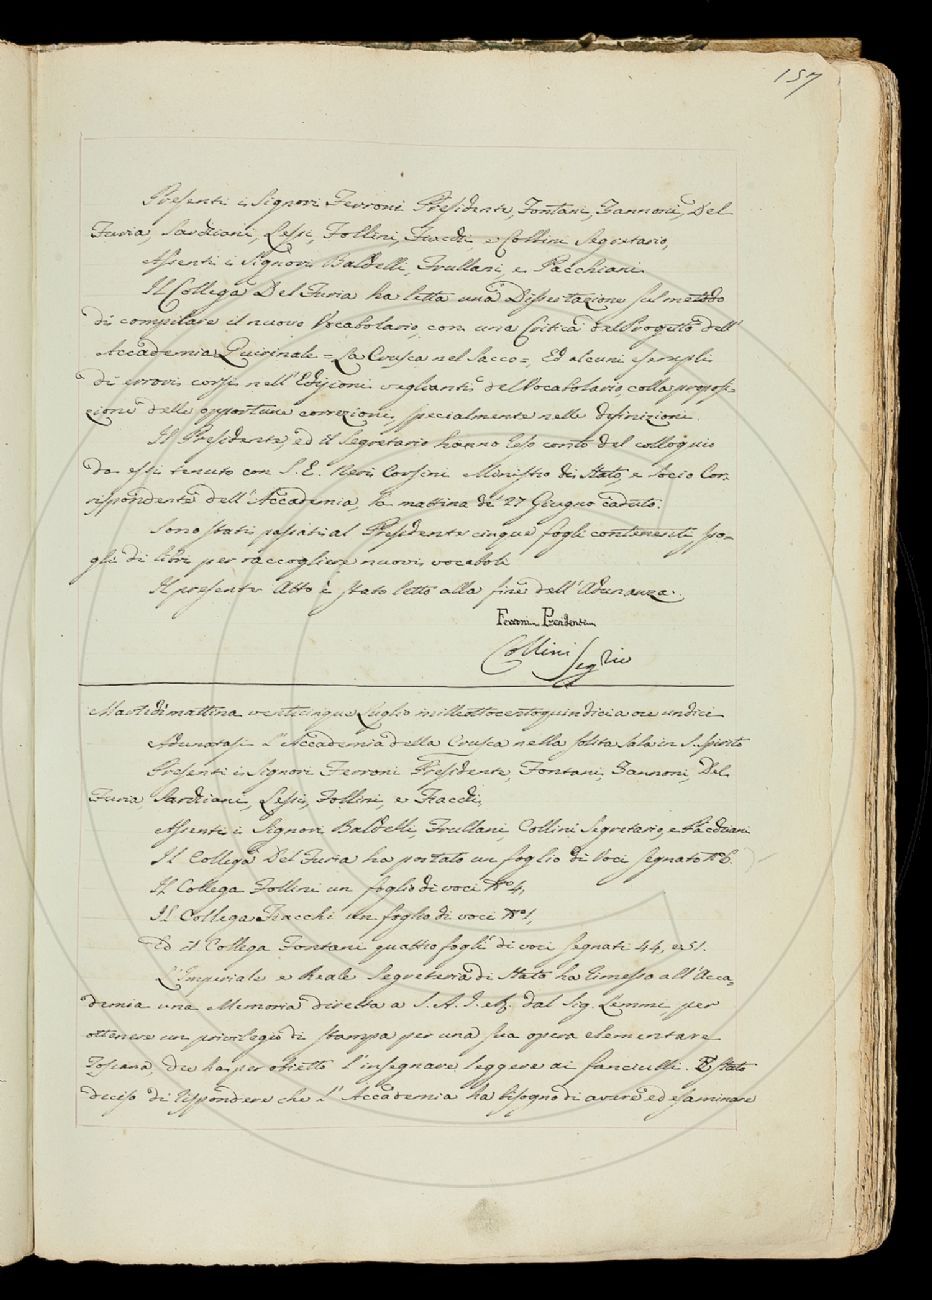 157
Presenti i Signori Ferroni Presidente, Fontani, Zannoni, Del
Furia, Sarchiani, Lessi, Follini, Fiacchi, e Collini Segretario,
Assenti i Signori Baldelli, Frullani, e Pacchiani.
Il Collega Del Furia ha letta una Dissertazione sul metodo
di compilare il nuovo Vocabolario, con una Critica dall Progetto dell'
Accademia Quirinale = La Crusca nel Sacco =, Ed alcuni esempli
di errori corsi nell'Edizioni veglianti del Vocabolario, colla propos=
zione delle opportune correzioni, specialmente nelle definizioni.
Il Presidente, ed il Segretario hanno reso conto del colloquio
da essi tenuto con S. E. Neri Corsini Ministro di Stato, e Socio Cor=
rispondente dell'Accademia, la mattina de' 27 Giugno caduto.
Sono stati passati al Presidente cinque fogli contenenti spo=
gli di libri per raccogliere nuovi vocaboli
Il presente Atto è stato letto alla fine dell'Adunanza.
Ferroni Presidente
Collini Segrio
Martedì mattina venticinque Luglio milleottocentoquindici a ore undici
Adunatasi l'Accademia della Crusca nella solita Sala in S. Spirito
Presenti i Signori Ferroni Presidente, Fontani, Zannoni, Del
Furia, Sarchiani, Lessi, Follini, e Fiacchi,
Assenti i Signori Baldelli, Frullani, Collini Segretario, e Pacchiani
Il Collega Del Furia ha portato un foglio di Voci segnato No 6.
Il Collega Follini un foglio di voci No 4,
Il Collega Fiacchi un foglio di voci No 1,
Ed il Collega Fontani quattro fogli di voci segnati 44, e 51.
L'Imperiale e Reale Segreteria di Stato ha rimesso all'Acca=
demia una Memoria diretta a S. A. I. e R. dal Sig. Lemmi per
ottenere un privilegio di stampa per una sua opera elementare
Toscana, che ha per obietto l'insegnare leggere ai fanciulli. È stato
deciso di rispondere che l'Accademia ha bisogno di avere ed esaminare